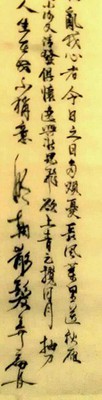 亂我心者今日之日多煩憂長風萬里送秋雁
小謝又清發俱懷逸興壯思飛欲上青天攬明月抽刀
人生在世不稱意明朝散髮弄扁